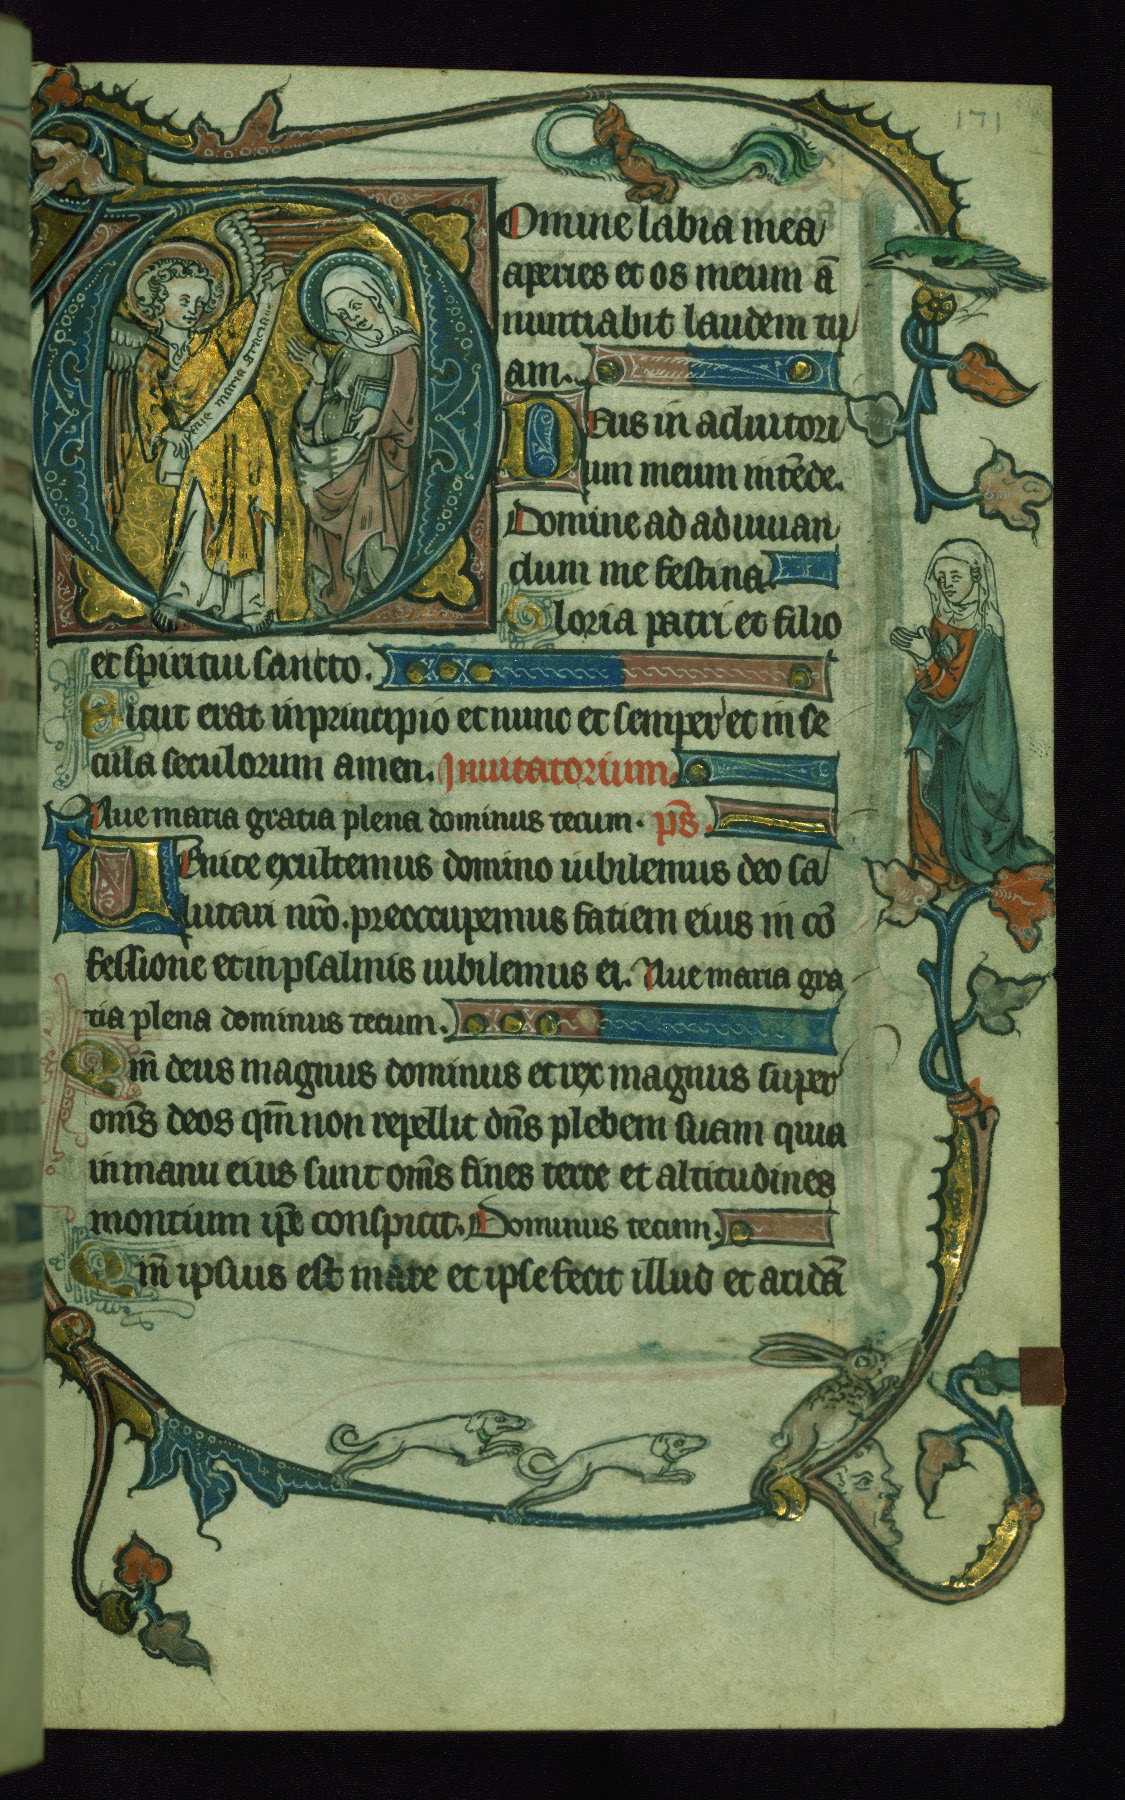 171
aue maria gracia
Omine labia mea
aperies et os meum ā
nuntiabit laudem tu
am.
Eus in adiutori
um meum intēde.
Domine ad adiuuan
dum me festina.
Gloria patri et filio
et spiritui sancto.
Sicut erat in principio et nunc et semper et in se
cula seculorum amen. Inuitatorium.
Aue maria gratia plena dominus tecum. p̄s.
VEnite exultemus domino iubilemus deo sa
lutari nr̄o. preoccupemus fatiem eius in cō
fessione et in psalmis iubilemus ei. Aue maria gra
tia plena dominus tecum.
Qm̄ deus magnus dominus et rex magnus super
om̄s deos qm̄ non repellit dn̄s plebem suam quia
in manu eius sunt om̄s fines terre et altitudines
montium ip̄e conspicit. Dominus tecum.
Qm̄ ipsius est mare et ipse fecit illud et aridā